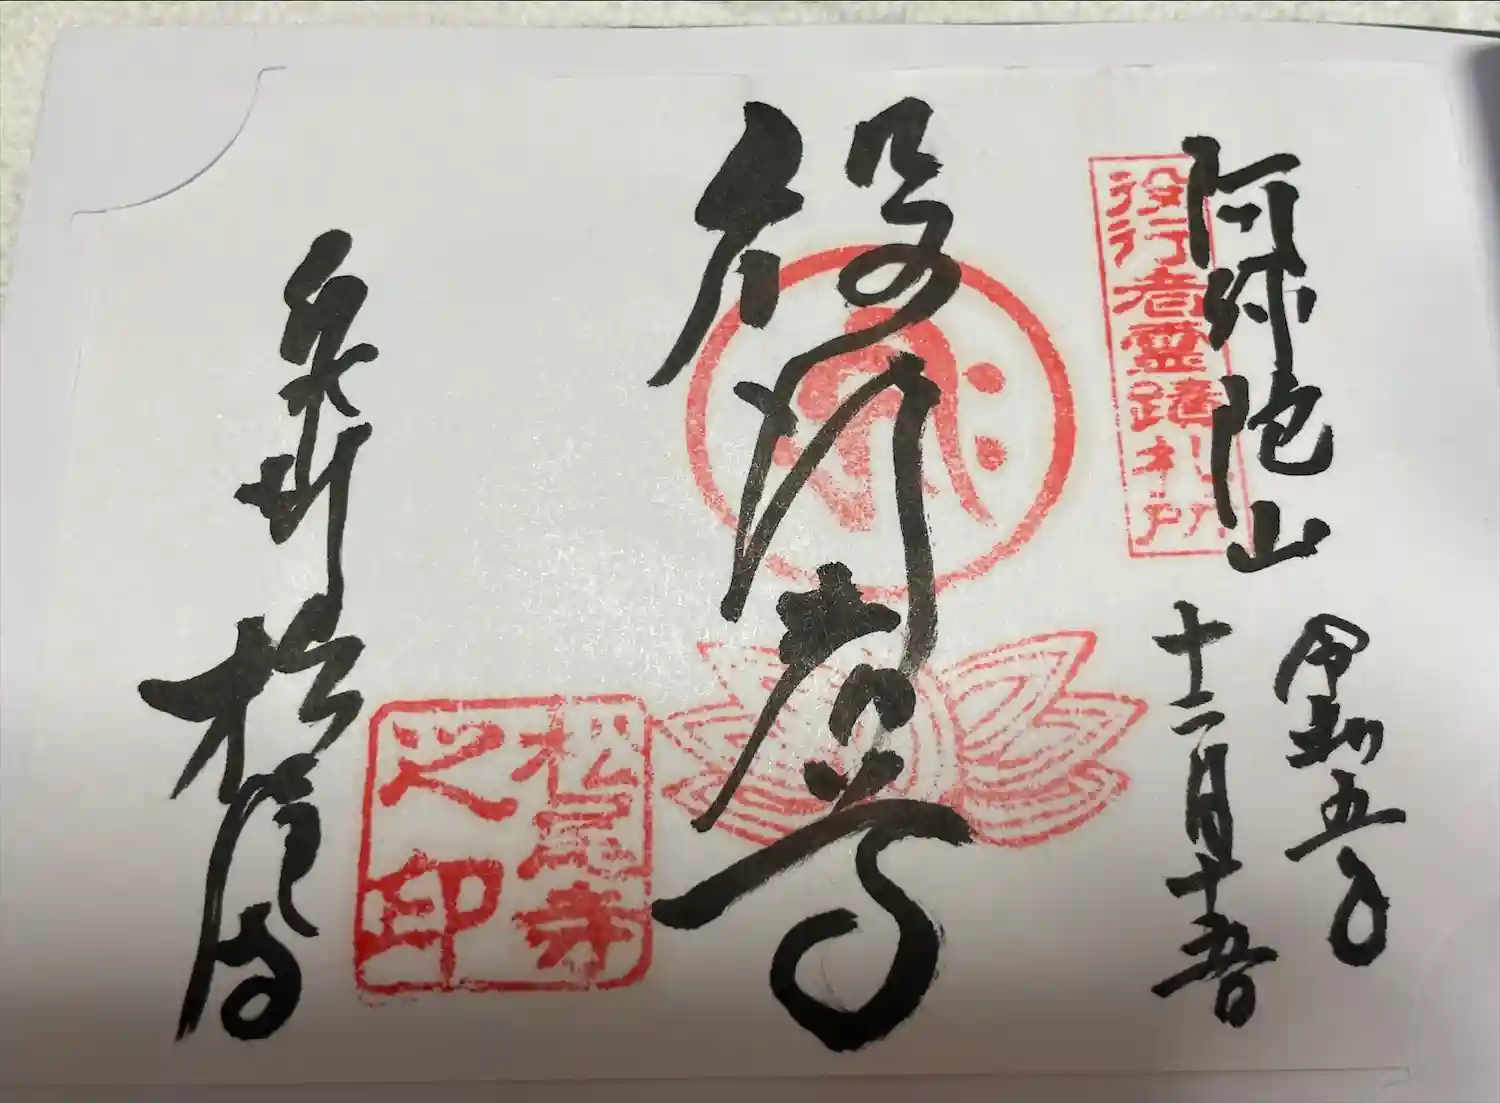 阿弥陀山
役行者霊蹟札所
令和五年
十二月十五日
役行者尊
松尾寺之印
泉州
松尾寺